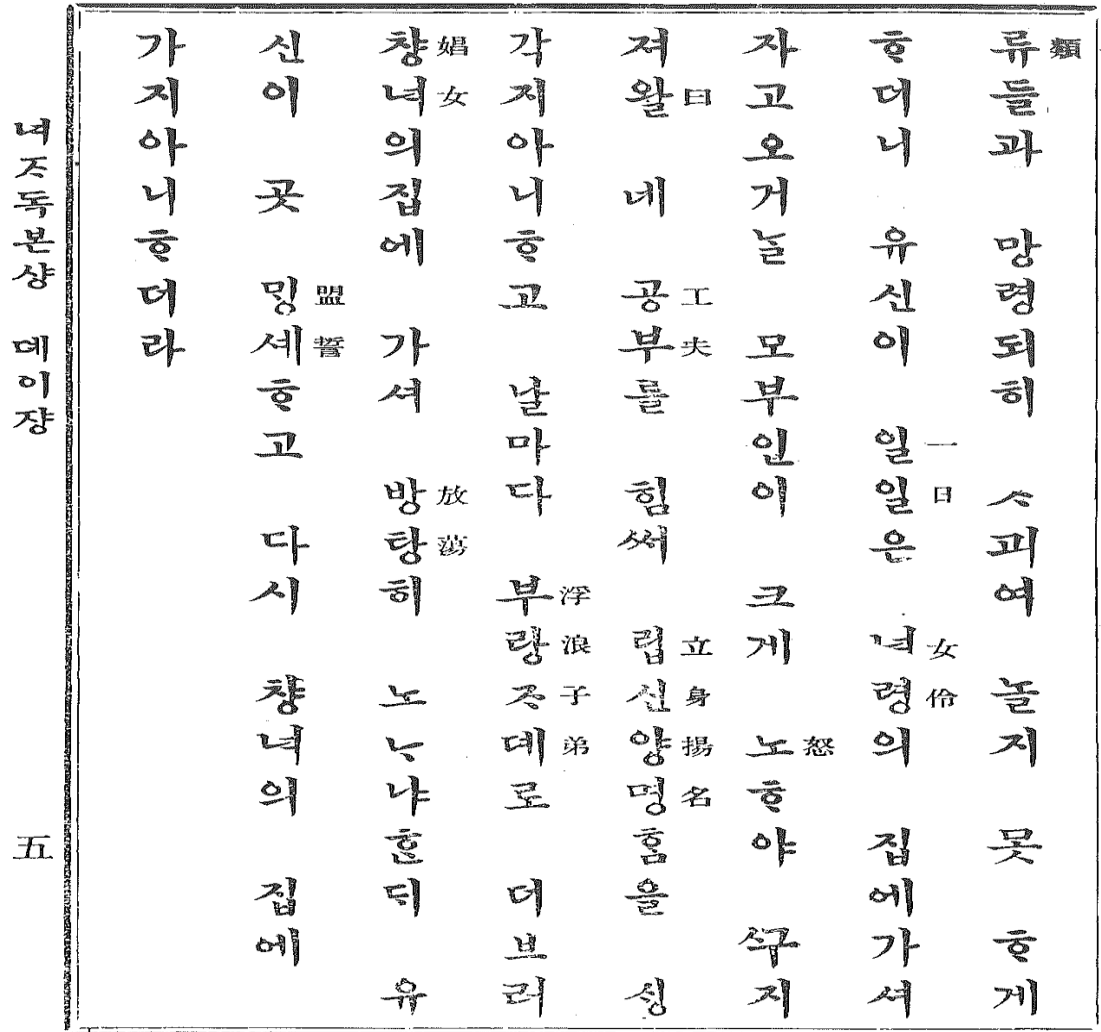 류類들과 망령되히 ᄉᆞ괴여 놀지 못 ᄒᆞ게
ᄒᆞ더니 유신이 일一일日은 녀女령伶의 집에가셔
자고오거ᄂᆞᆯ 모부인이 크게 노怒ᄒᆞ야 ᄭᅮ지
져왈曰 네 공工부夫를 힘써 립立신身양揚명名ᄒᆞᆷ을 ᄉᆡᆼ
각지아니ᄒᆞ고 날마다 부浮랑浪ᄌᆞ子뎨弟로 더브러
챵娼녀女의집에 가셔 방放탕蕩히 노ᄂᆞ냐ᄒᆞᆫᄃᆡ 유
신이 곳 ᄆᆡᆼ盟셰誓ᄒᆞ고 다시 챵녀의 집에
가지아니ᄒᆞ더라
녀ᄌᆞ독본샹 뎨이쟝 五